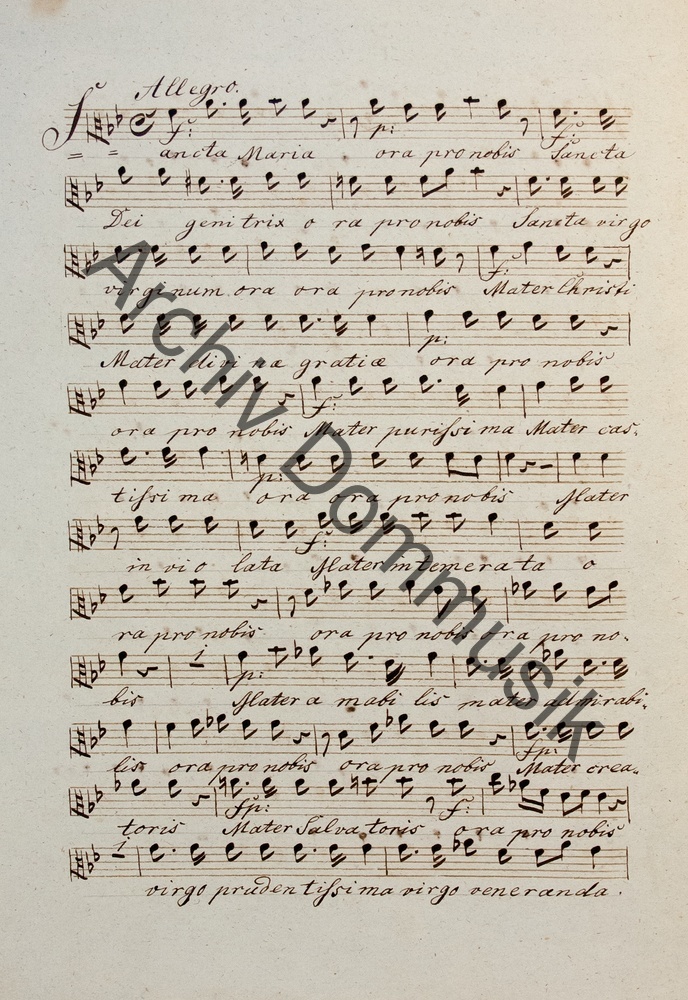 Allegro.
f: p: f:
Sancta Maria ora pro nobis Sancta
Dei genitrix o ra pro nobis Sancta virgo
f:
virginum ora ora pro nobis Mater Christi
p:
Mater divi næ gratiæ ora pro nobis
f:
ora pro nobis Mater purissi ma Mater cas-
p:
tissi ma ora ora pro nobis Mater
f:
in vi o lata Mater intemerata o
ra pro nobis ora pro nobis ora pro no-
1 p:
bis Mater a mabi lis mater admirabi-
fp:
lis ora pro nobis ora pro nobis Mater crea-
fp: f:
toris Mater Salva toris ora pro nobis
1
virgo prudentissi ma virgo veneranda.
Archiv Dommusik